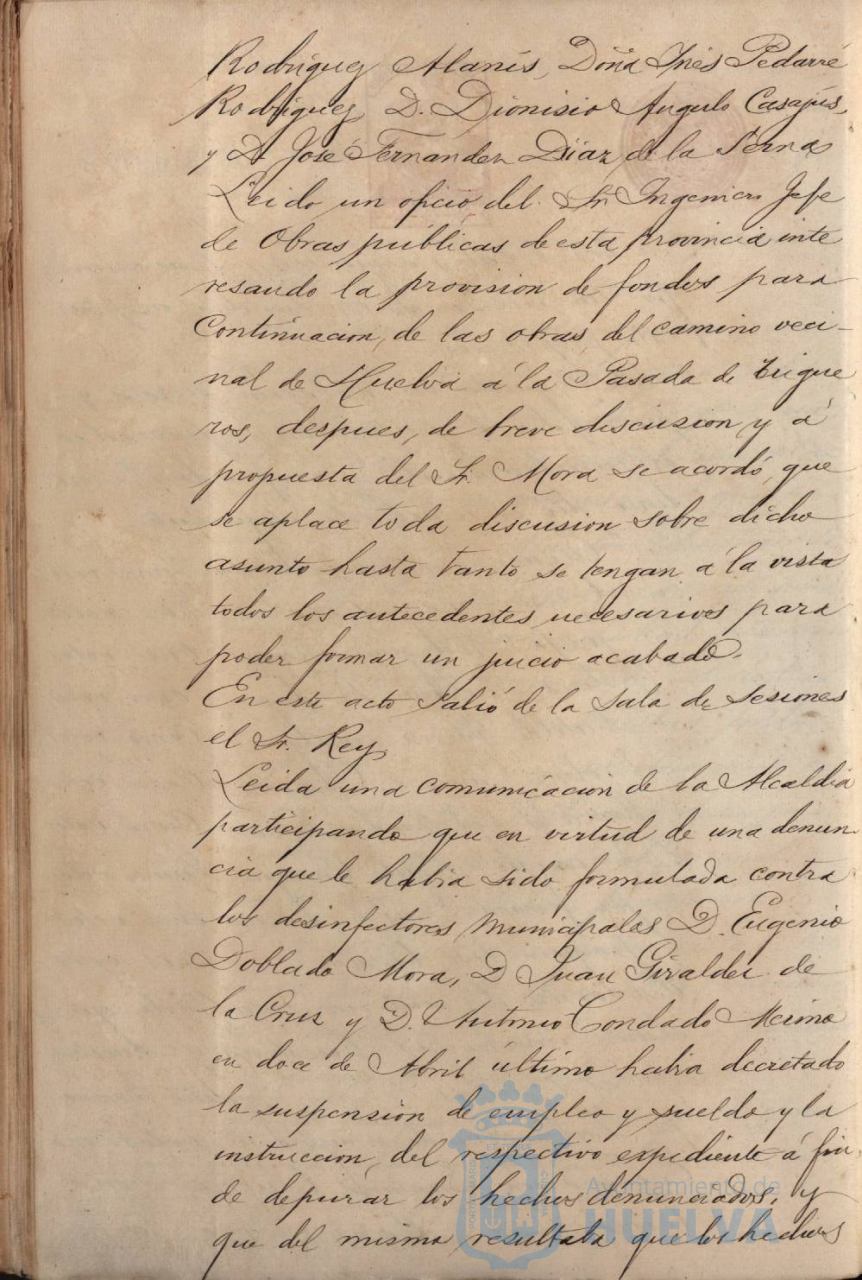 Rodriguez Alanís, Doña Inés Pedarré
Rodriguez, D. Dionisio Angulo Casajús,
y D. José Fernandez Diaz de la Serna
Leido un oficio del Sr. Ingeniero Jefe
de Obras públicas de esta provincia inte
resando la provision de fondos para
Continuacion, de las obras del camino veci-
nal de Huelva á la Pasada de Trigue
ros, despues, de breve discusion y á
propuesta del Sr. Mora se acordó, que
se aplace toda discusion sobre dicho
asunto hasta tanto se tengan á la vista
todos los antecedentes necesarios para
poder formar un juicio acabado.
En este acto salió de la Sala de Sesiones
el Sr. Rey,
Leida una comunicacion de la Alcaldia
participando que en virtud de una denun-
cia que le habia sido formulada contra
los desinfectores municipales D. Eugenio
Doblado Mora, D Juan Giraldez de
la Cruz y D. Antonio Condado Merino
en doce de Abril último habia decretado
la suspension de empleo y sueldo y la
instruccion, del respectivo expediente á fin
de depurar los hechos denunciados, y
que del mismo resultaba que los hechos
Ayuntamiento de
HUELVA